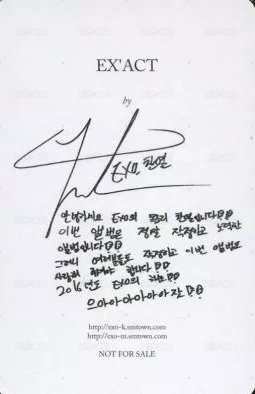 EX'ACT
by
EXO 찬열
안녕하세요 EXO의 찬열입니다
이번 앨범은 정말 작정하고 노력한
앨범입니다
그러니 여러분도 작정하고 이번 앨범도
사랑해 합니다
2016년도 EXO의 해로
으아아아아아아자
http://exo-k.smtown.com
http://exo-m.smtown.com
NOT FOR SALE